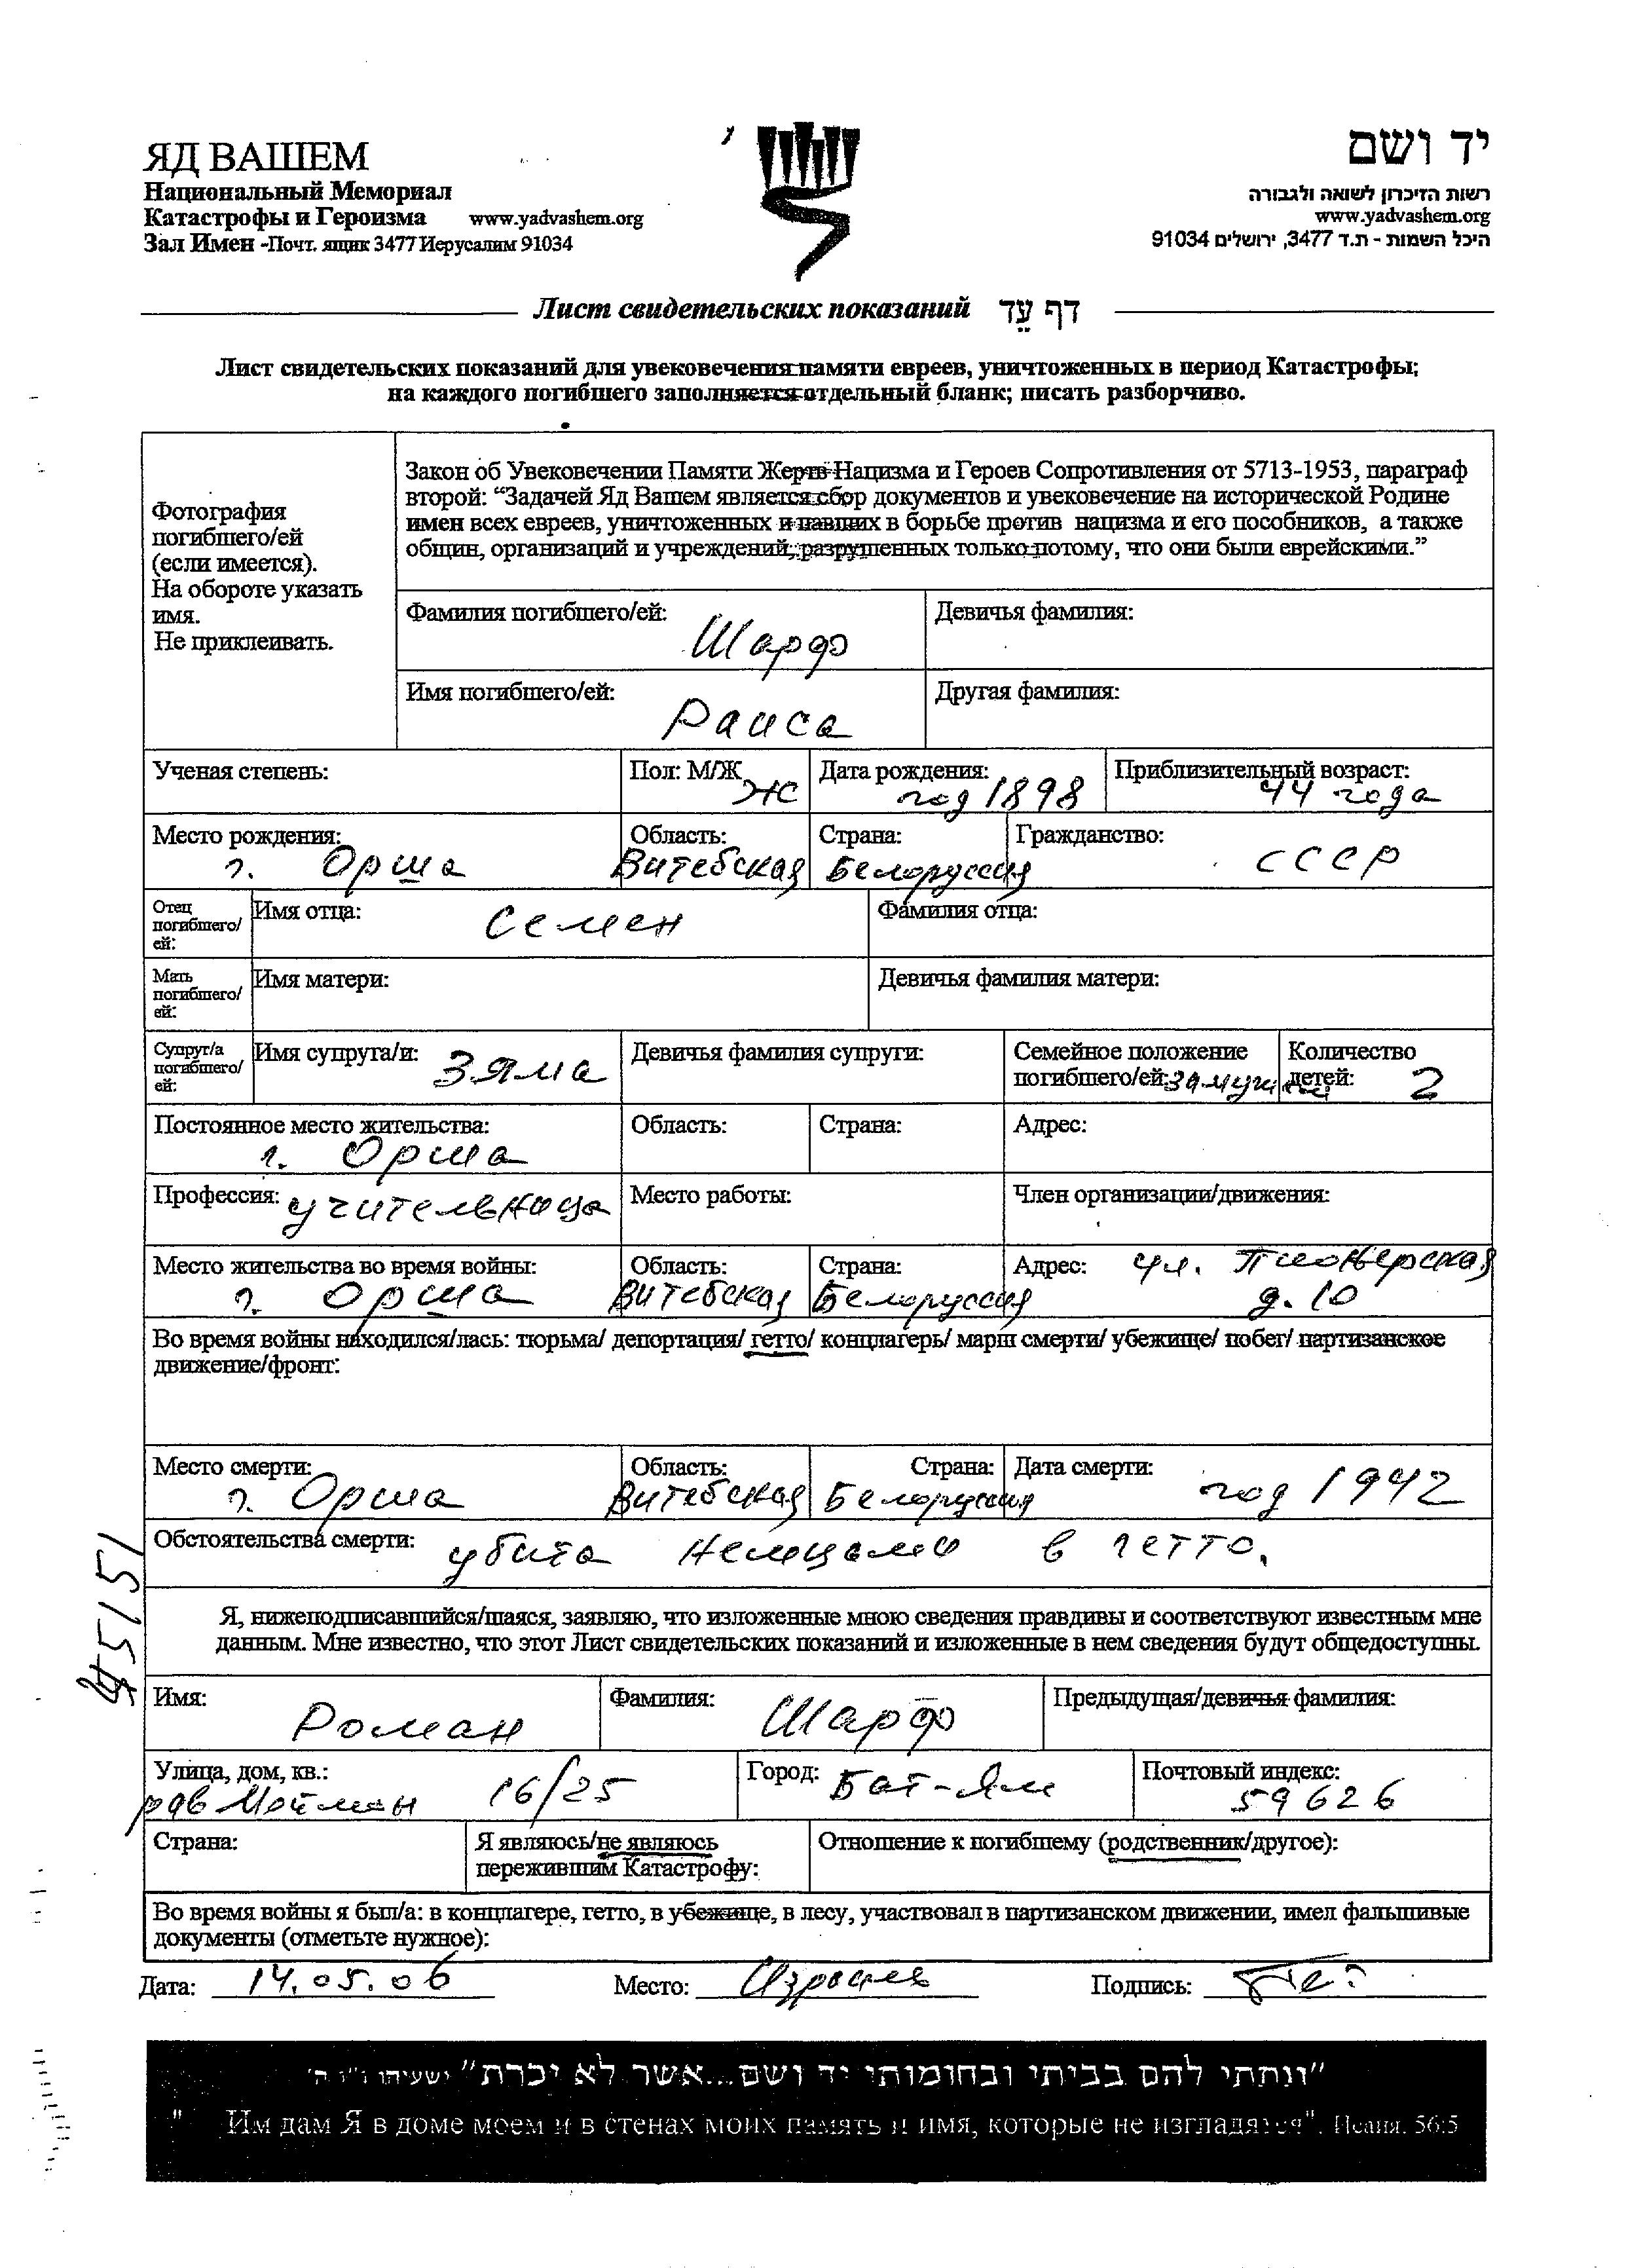 ЯД ВАШЕМ
Национальный Мемориал
Катастрофы и Героизма www.yadvashem.org
Зал Имен -Почт. ящик 3477 Иерусалим 91034
יד ושם
רשות הזיכרון לשואה ולגבורה
www.yadvashem.org
היכל השמות - ת.ד 3477, ירושלים 91034
Лист свидетельских показаний דף עֵד
Лист свидетельских показаний для увековечения памяти евреев, уничтоженных в период Катастрофы;
на каждого погибшего заполняется отдельный бланк; писать разборчиво.
Фотография
погибшего/ей
(если имеется).
На обороте указать
имя.
Не приклеивать.
Закон об Увековечении Памяти Жертв Нацизма и Героев Сопротивления от 5713-1953, параграф
второй: “Задачей Яд Вашем является сбор документов и увековечение на исторической Родине
имен всех евреев, уничтоженных и павших в борьбе против нацизма и его пособников, а также
общин, организаций и учреждений, разрушенных только потому, что они были еврейскими.”
Фамилия погибшего/ей: Шарф Девичья фамилия:
Имя погибшего/ей: Раиса Другая фамилия:
Ученая степень: Пол: М/Ж Ж Дата рождения: год 1898 Приблизительный возраст: 44 года
Место рождения: г. Орша Область: Витебская Страна: Белоруссия Гражданство: СССР
Отец
погибшего/
ей:
Имя отца: Семен Фамилия отца:
Мать
погибшего/
ей:
Имя матери: Девичья фамилия матери:
Супруг/а
погибшего/
ей:
Имя супруга/и: Зяма Девичья фамилия супруги:
Семейное положение
погибшего/ей: замужем
Количество
детей: 2
Постоянное место жительства: г. Орша Область: Страна: Адрес:
Профессия: учительница Место работы: Член организации/движения:
Место жительства во время войны: г. Орша Область: Витебская Страна: Белоруссия Адрес: ул. Пионерская
д. 10
Во время войны находился/лась: тюрьма/ депортация/ гетто/ концлагерь/ марш смерти/ убежище/ побег/ партизанское
движение/фронт:
Место смерти: г. Орша Область: Витебская Страна: Белоруссия Дата смерти: год 1942
Обстоятельства смерти: убита немцами в гетто.
Я, нижеподписавшийся/шаяся, заявляю, что изложенные мною сведения правдивы и соответствуют известным мне
данным. Мне известно, что этот Лист свидетельских показаний и изложенные в нем сведения будут общедоступны.
Имя: Роман Фамилия: Шарф Предыдущая/девичья фамилия:
Улица, дом, кв.: 16/25 Город: Бат-Ям Почтовый индекс: 59626
рав
Страна:
Я являюсь/не являюсь
пережившим Катастрофу:
Отношение к погибшему (родственник/другое):
Во время войны я был/а: в концлагере, гетто, в убежище, в лесу, участвовал в партизанском движении, имел фальшивые
документы (отметьте нужное):
Дата: 14.05.06 Место: Израиль Подпись:
"ונתתי להם בביתי ובחומותי יד ושם...אשר לא יכרת" ישעיהו נ"ו ה'
" Им дам Я в доме моем и в стенах моих память и имя, которые не изгладятся". Исаия. 56:5